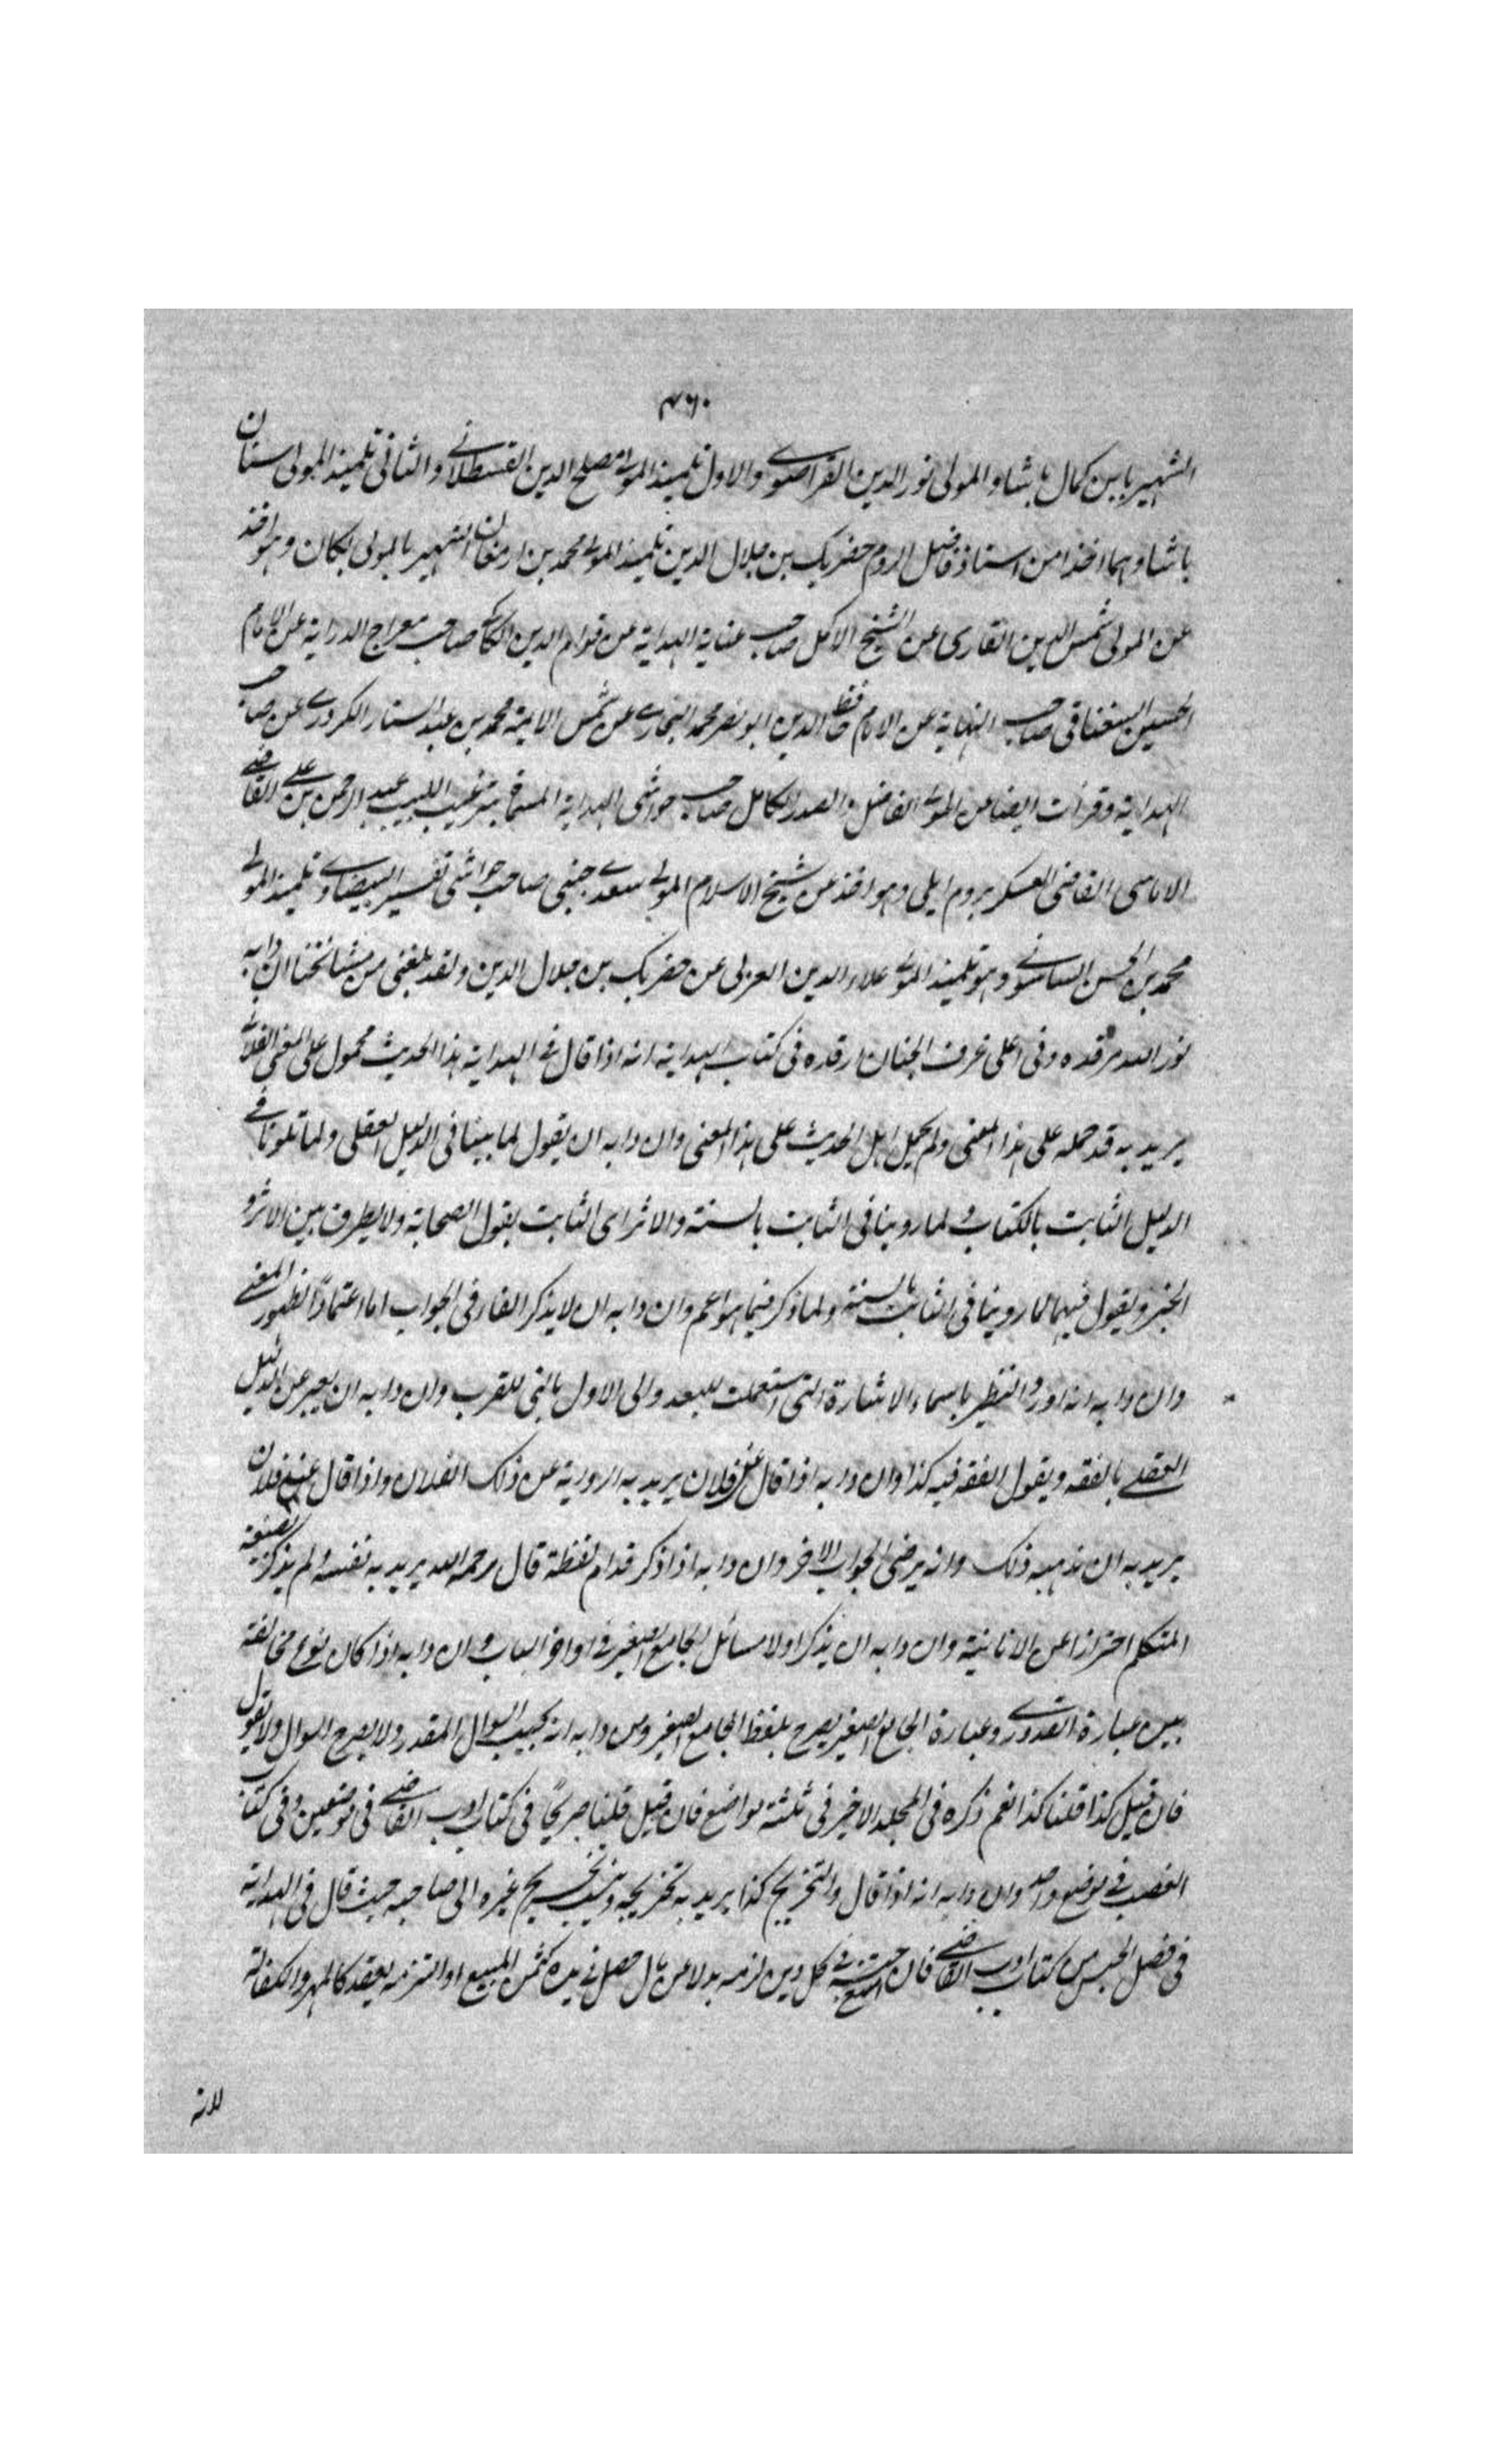 ٤٦٠
الشهير بابن كمال باشا و المولى نور الدين القراصوے والاول تلميذ المولے مصلح الدين القسطلانے و الثانى تلميذ المولى استان
باشا وهما اخذا من استاذ فاضل الروم حضر بك بن جلال الدين تلميذ المولے محمد بن ارمغان الشهير بالمولى يكان وهو اخذ
عن المولى شمس الدين القارى عن الشيخ الاكمل صاحب عناية الهداية عن قوام الدين الكاكے صاحب معراج الدراية عن الامام
الحسين السغناقى صاحب النهاية عن الامام حافظ الدين ابو نصر محمد البخارے عن شمس الايمة محمد بن عبد الستار الكردرے عن صاحب
الهداية وقرأت ايضا من المولے الفاضل و الصدر الكامل صاحب حواشى الهداية المسماة بترغيب اللبيب عبد الرحمن بن على القاضے
الاماسى القاضى العسكر بروم ايلى وهو اخذ عن شيخ الاسلام المولے سعدے جبنى صاحب حواشى تفسير البيضاوے تلميذ المولے
محمد بن الحسن السامسونے وهو تلميذ المولے علاء الدين العربى عن حضر بك بن جلال الدين ولقد بلغنى من مشائخنا ان دابه
نور الله مرقده وفى اعلى غرف الجنان ارقده فى كتاب الهداية انه اذا قال فے الهداية هذا الحديث محمول على المعنى الفلانے
يريد به قد حمله على هذا المعنى ولم يحمل اهل الحديث على هذا المعنى وان دابه ان يقول لما بينا فى الدليل العقلى ولما تلونا فے
الدليل الثابت بالكتاب و لما روينا فى الثابت بالسنة والاثر اى الثابت بقول الصحابة ولا يفرق بين الاثر و
الخبر ويقول فيهما لما روينا فى الثابت بالسنة ولما ذكر فيما هو اعم وان دابه ان لا يذكر الفا فى الجواب اما اعتمادًا لظهور المعنے
وان دابه انه اورد النظير باسماء الاشارة التى استعملت للبعد والى الاول بالتى للقرب وان دابه ان يعبر عن الدليل
العقلے بالفقه ويقول الفقه فيه كذا وان دابه اذا قال عن فلان يريد به الرواية عن ذلك الفلان واذا قال عند فلان
يريد به ان مذهبه ذلك وانه يرضى الجواب الاخر وان دابه اذا ذكر قدام لفظة قال رحمه الله يريد به نفسه ولم يذكر بصيغة
المتكلم احترازا عن الانانية وان دابه ان يذكر اولا مسائل الجامع الصغير فے اواخر الباب و ان دابه اذا كان نوع مخالفة
بين عبارة القدورے وعبارة الجامع الصغير يصرح بلفظ الجامع الصغير ومن دابه انه يجيب السوال المقدر ولا يصرح السوال ولا يقول
فان قيل كذا قلنا كذا نعم ذكره فى المجلد الاخير فى ثلثة مواضع فان قيل قلنا صريحًا فى كتاب ادب القاضے فى موضعين وفى كتاب
الغصب فے موضع واحد وان دابه انه اذا قال والتخريج كذا يريد به تخريجه وينسب تخريج غيره الى صاحبه حيث قال فى الهداية
فى فصل الحبس من كتاب ادب القاضے فان امتنع حبسه فے كل دين لزمه بدلا عن مال حصل فے يده كثمن المبيع او التزمه بعقد كالمهر والكفالة
لانه